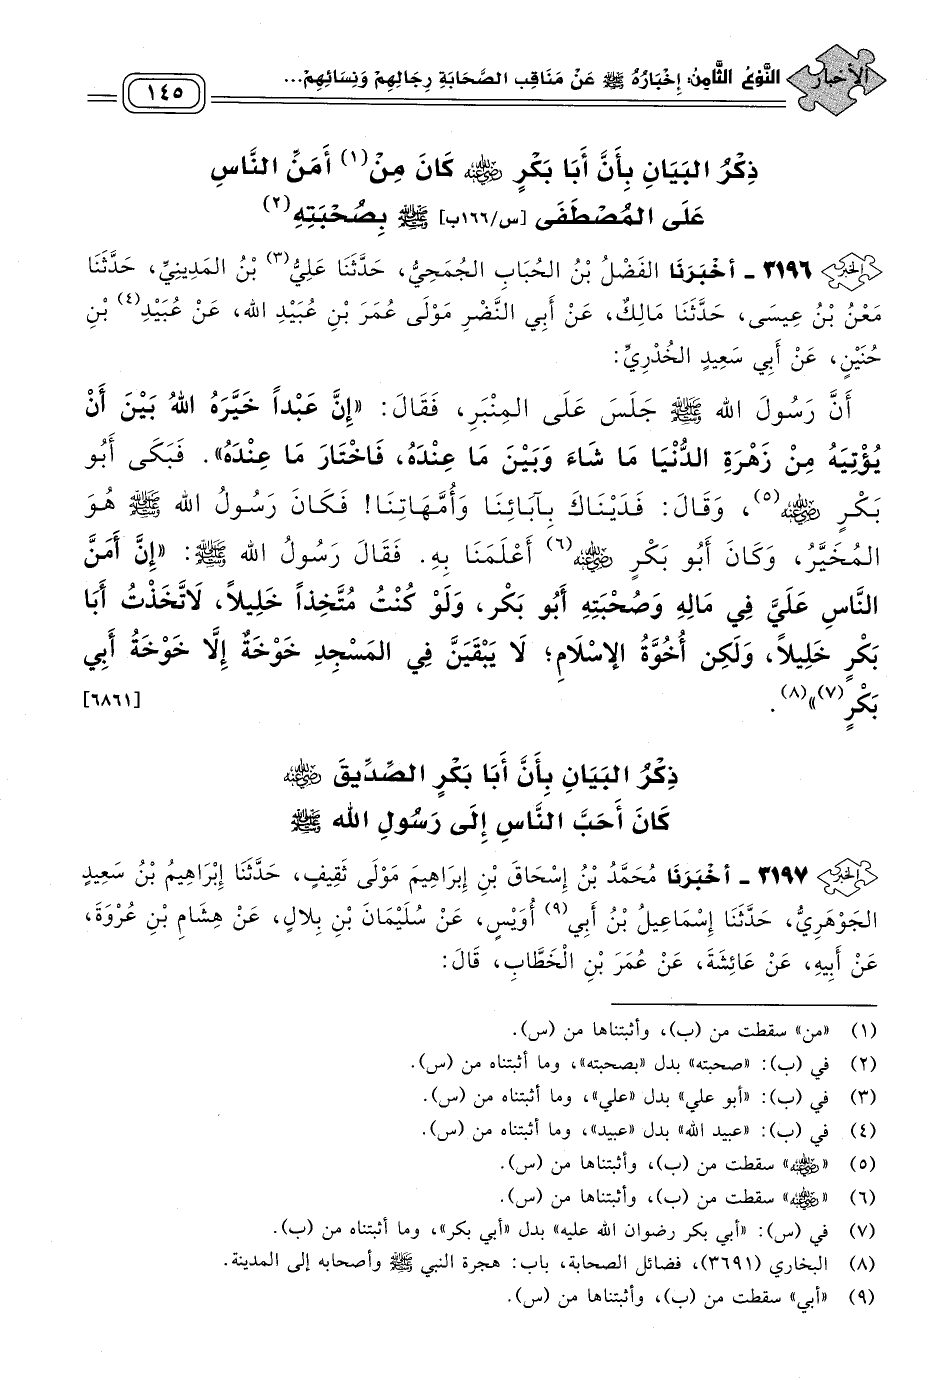 الأخبار النَّوْعُ الثَّامِنُ: إِخْبَارُهُ ﷺ عَنْ مَنَاقِبِ الصَّحَابَةِ رِجَالِهِمْ وَنِسَائِهِمْ...
١٤٥
ذِكْرُ البَيَانِ بِأَنَّ أَبَا بَكْرٍ رضي الله عنه كَانَ مِنْ(١) أَمَنِّ النَّاسِ
عَلَى المُصْطَفَى [س/١٦٦ب] ﷺ بِصُحْبَتِهِ(٢)
٣١٩٦ - أَخْبَرَنَا الفَضْلُ بْنُ الحُبَابِ الجُمَحِيُّ، حَدَّثَنَا عَلِيُّ(٣) بْنُ المَدِينِيِّ، حَدَّثَنَا
مَعْنُ بْنُ عِيسَى، حَدَّثَنَا مَالِكٌ، عَنْ أَبِي النَّضْرِ مَوْلَى عُمَرَ بْنِ عُبَيْدِ الله، عَنْ عُبَيْدِ(٤) بْنِ
حُنَيْنٍ، عَنْ أَبِي سَعِيدٍ الخُدْرِيِّ:
أَنَّ رَسُولَ الله ﷺ جَلَسَ عَلَى المِنْبَرِ، فَقَالَ: «إِنَّ عَبْداً خَيَّرَهُ اللهُ بَيْنَ أَنْ
يُؤْتِيَهُ مِنْ زَهْرَةِ الدُّنْيَا مَا شَاءَ وَبَيْنَ مَا عِنْدَهُ، فَاخْتَارَ مَا عِنْدَهُ». فَبَكَى أَبُو
بَكْرٍ رضي الله عنه(٥)، وَقَالَ: فَدَيْنَاكَ بِآبَائِنَا وَأُمَّهَاتِنَا! فَكَانَ رَسُولُ الله ﷺ هُوَ
المُخَيَّرُ، وَكَانَ أَبُو بَكْرٍ رضي الله عنه(٦) أَعْلَمَنَا بِهِ. فَقَالَ رَسُولُ الله ﷺ: «إِنَّ أَمَنَّ
النَّاسِ عَلَيَّ فِي مَالِهِ وَصُحْبَتِهِ أَبُو بَكْر، وَلَوْ كُنْتُ مُتَّخِذاً خَلِيلاً، لَاتَّخَذْتُ أَبَا
بَكْرٍ خَلِيلاً، وَلَكِن أُخُوَّةُ الإِسْلَامِ؛ لَا يَبْقَيَنَّ فِي المَسْجِدِ خَوْخَةٌ إِلَّا خَوْخَةُ أَبِي
بَكْرٍ(٧)»(٨). [٦٨٦١]
ذِكْرُ البَيَانِ بِأَنَّ أَبَا بَكْرٍ الصِّدِّيقَ رضي الله عنه
كَانَ أَحَبَّ النَّاسِ إِلَى رَسُولِ الله ﷺ
٣١٩٧ - أَخْبَرَنَا مُحَمَّدُ بْنُ إِسْحَاقَ بْنِ إِبْرَاهِيمَ مَوْلَى ثَقِيفٍ، حَدَّثَنَا إِبْرَاهِيمُ بْنُ سَعِيدٍ
الجَوْهَرِيُّ، حَدَّثَنَا إِسْمَاعِيلُ بْنُ أَبِي(٩) أُوَيْسٍ، عَنْ سُلَيْمَانَ بْنِ بِلَالٍ، عَنْ هِشَامِ بْنِ عُرْوَةَ،
عَنْ أَبِيهِ، عَنْ عَائِشَةَ، عَنْ عُمَرَ بْنِ الْخَطَّابِ، قَالَ:
(١) «من» سقطت من (ب)، وأثبتناها من (س).
(٢) في (ب): «صحبته» بدل «بصحبته»، وما أثبتناه من (س).
(٣) في (ب): «أبو علي» بدل «علي»، وما أثبتناه من (س).
(٤) في (ب): «عبيد الله» بدل «عبيد»، وما أثبتناه من (س).
(٥) «رضي الله عنه» سقطت من (ب)، وأثبتناها من (س).
(٦) «رضي الله عنه» سقطت من (ب)، وأثبتناها من (س).
(٧) في (س): «أبي بكر رضوان الله عليه» بدل «أبي بكر»، وما أثبتناه من (ب).
(٨) البخاري (٣٦٩١)، فضائل الصحابة، باب: هجرة النبي ﷺ وأصحابه إلى المدينة.
(٩) «أبي» سقطت من (ب)، وأثبتناها من (س).